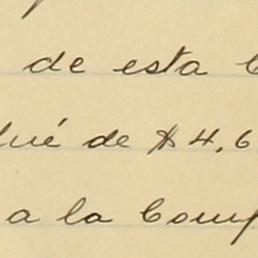 de esta C
fué de $4,6
a la Comp